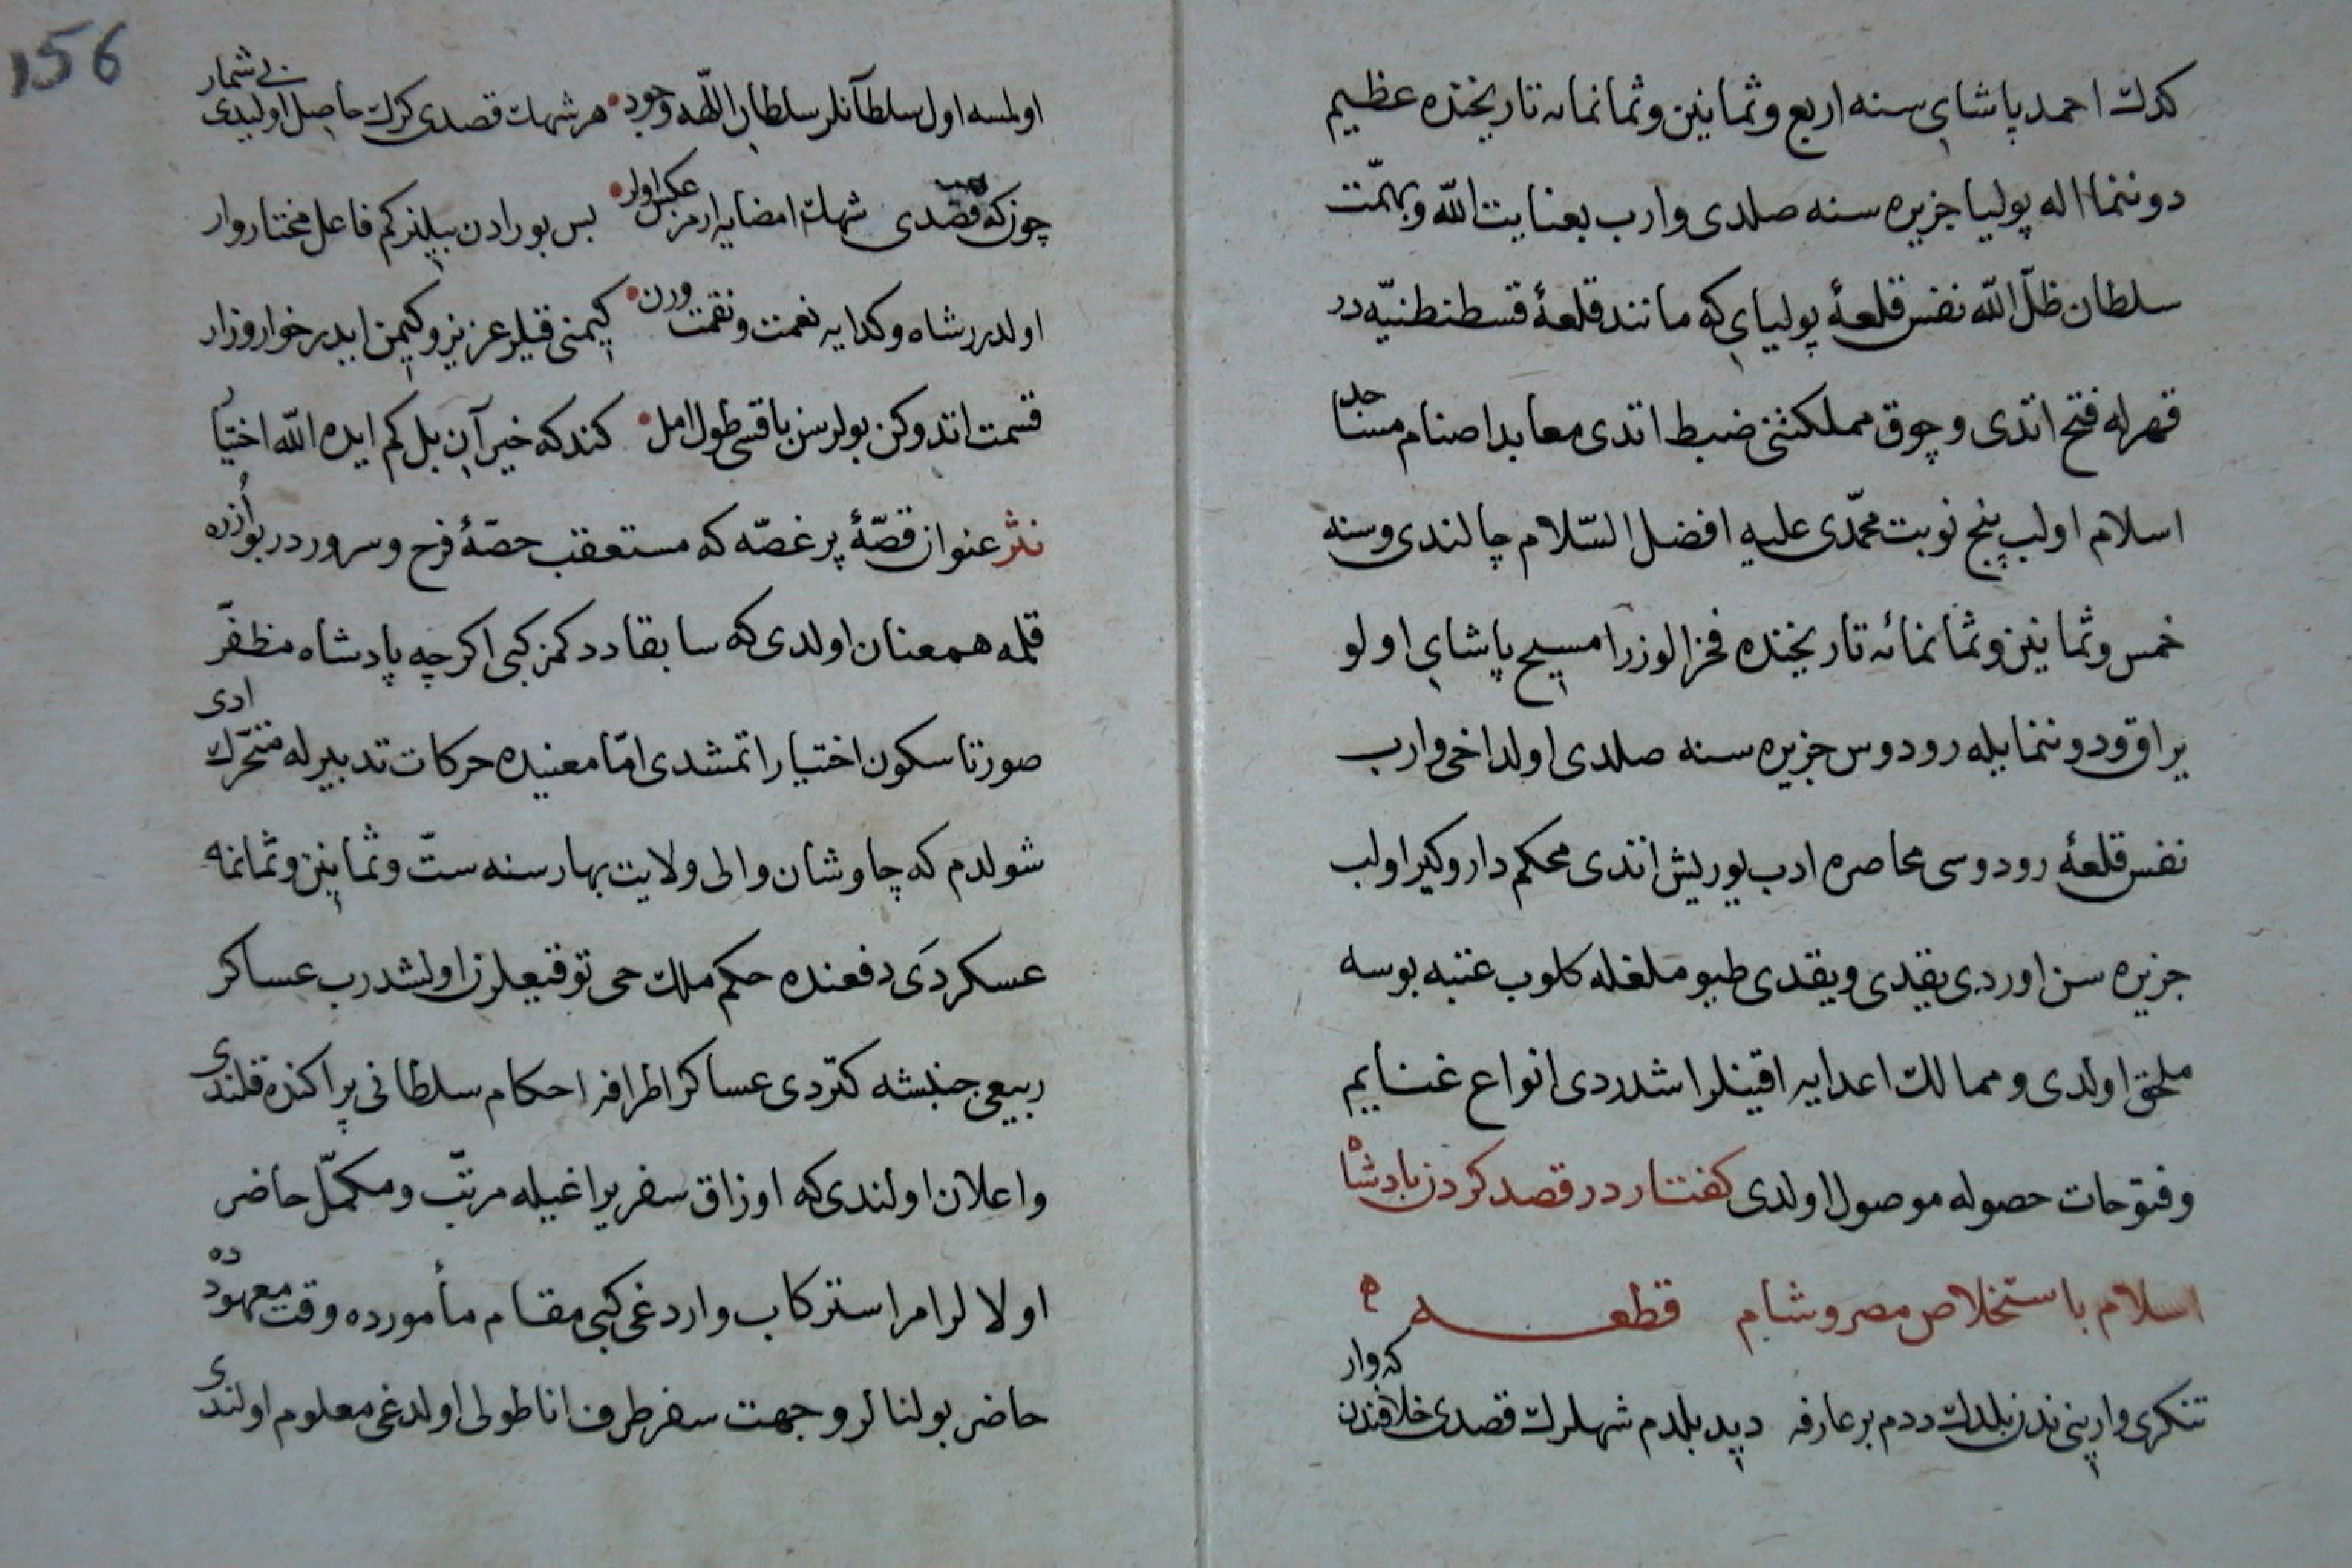 كدك احمد پاشای سنه اربع و ثمانین و ثمانمانه تاریخنده عظیم
دوننما اله پولیا جزیره سنه صلدی وارب بعنایت الله و بهمّت
سلطان ظلّ الله نفس قلعۀ پولیای که مانند قلعۀ قسطنطنیّه در
قهرله فتح اتدی و چوق مملکتنی ضبط اتدی معابد اصنام مساجد
اسلام اولب پنج نوبت محمّدی علیه افضل السّلام چالندی و سنه
خمس و ثمانین و ثمانمائه تاریخنده فخر الوزرا مسیح پاشای اولو
یراق و دوننمایله رودوس جزیره سنه صلدی اولداخی وارب
نفس قلعۀ رودوسی محاصره ادب یوریش اتدی محکم داروکیر اولب
جزیره سن اوردی یقدی و یقدی طیو ملغله کلوب عتبه بوسه
ملحق اولدی و ممالك اعدایه اقینلر اشدردی انواع غنایم
و فتوحات حصوله موصول اولدی کفتار در قصد کردن پادشاه
اسلام باستخلاص مصر و شام قطعه
تنکری وارینی ندن بلدك ددم بر عارفه دیدی بلدم شهلرك قصدی خلافندن که وار
156
اولمسه اول سلطانلر سلطان اللّهه وجود هر شهك قصدی کرك حاصل اولیدی بی شمار
چونکه قصدی شهك امضایه ارمز عکس اولر بس بورادن بیلنر کم فاعل مختار وار
اولدرر شاه و کدایه نعمت و نقمت ورن کیمنی قیلر عزیز و کیمن ایدر خوار و زار
قسمت اتدوکن بولرسن باقسی طول امل کندکه خیر آن بل کم ایده الله اختیار
نثر عنوان قصّۀ پر غصّه که مستعقب حصّۀ فرح و سروردر بو ازره
قلمه همعنان اولدی که سابقا ددکمز کبی اکرچه پادشاه مظفّر
صورتا سکون اختیار اتمشدی امّا معنیده حرکات تدبیرله متحرّك ادی
شولدم که چاوشان والی ولایت بهار سنه ستّ و ثمانین و ثمانمه
عسکر دَی دفعنده حکم ملك حی توقیعلرن اولشدرب عساکر
ربیعی جنبشه کتردی عساکر اطرافه احکام سلطانی پراکنده قلندی
و اعلان اولندی که اوزاق سفر یراغیله مرتّب و مکمّل حاضر
اولالر امر استرکاب واردغی کبی مقام مأمورده وقت معهودده
حاضر بولنالر و جهت سفر طرف اناطولی اولدغی معلوم اولندی